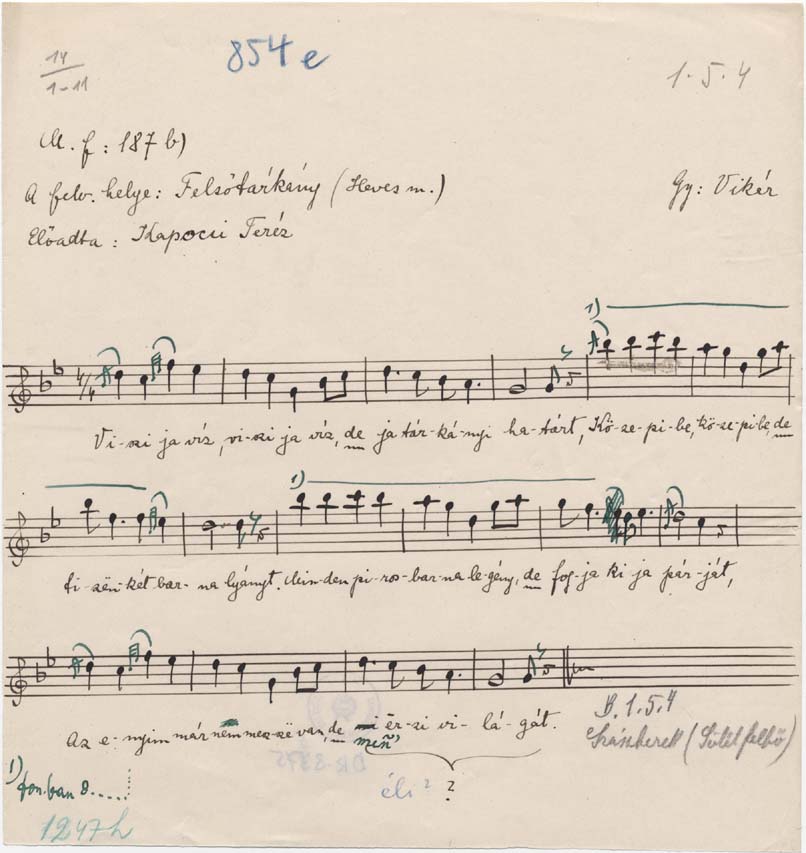 14
1-11
854 e
1. 5. 4
M. f: 187 b)
A felv. helye: Felsőtárkány (Heves m.)
Gy: Vikár
Előadta: Kapocsi Teréz
1)
4/4
Vi-szi ja víz, vi-szi ja víz, de ja tár-ká-nyi ha-tárt, Kö-ze-pi-be, kö-ze-pi-be, de
1)
ti-zën-két bar-na lyányt. Min-den pi-ros-bar-na le-gény, de fog-ja ki ja pár-ját,
Az e-nyim már nem mesz-szë van, de i ër-szi vi-lá-gát.
miñ'
B. 1.5.4
éli? ?
1) fon.ban 8.....
1247h